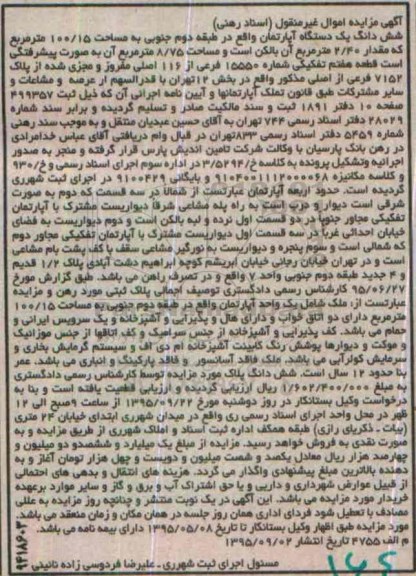 آگهی مزایده اموال غیرمنقول (اسناد رهنی)
شش دانگ یک دستگاه آپارتمان واقع در طبقه دوم جنوبی به مساحت ۱۰۰/۱۵ مترمربع
که مقدار ۲/۴۰ مترمربع آن بالکن است و مساحت ۸/۷۵ مترمربع آن به صورت پیشرفتگی
است قطعه هفتم تفکیکی شماره ۱۵۵۵۰ فرعی از ۱۱۶ اصلی مفروز و مجزی شده از پلاک
۷۱۵۲ فرعی از اصلی مذکور واقع در بخش ۱۲تهران با قدرالسهم از عرصه و مشاعات و
سایر مشترکات طبق قانون تملک آپارتمانها و آیین نامه اجرائی آن که ذیل ثبت ۴۹۹۳۵۷
صفحه ۱۰ دفتر ۱۸۹۱ ثبت و سند مالکیت صادر و تسلیم گردیده و برابر سند شماره
۲۸۰۲۹ دفتر اسناد رسمی ۷۴۴ تهران به آقای حسین عبدیان منتقل و به موجب سند رهنی
شماره ۵۴۵۹ دفتر اسناد رسمی ۸۳۳تهران در قبال وام دریافتی آقای عباس خدامرادی
در رهن بانک پارسیان با وکالت شرکت تامین اندیش پارس قرار گرفته و منجر به صدور
اجرائیه وتشکیل پرونده به کلاسه خ/۳/۵۲۹۴ در اداره سوم اجرای اسناد رسمی و خ/۹۳۰
و کلاسه مکانیزه ۹۱۰۴۰۰۱۱۱۲۰۰۰۰۶۸ و بایگانی ۹۱۰۰۴۲۹ در اجرای ثبت شهرری
گردیده است. حدود اربعه آپارتمان عبارتست از شمالا در سه قسمت که دوم به صورت
شرقی است دیوار و درب است به راه پله مشاعی شرقا دیواریست مشترک با آپارتمان
تفکیکی مجاور جنوبا در دو قسمت اول نرده و لبه بالکن است و دوم دیواریست به فضای
خیابان احداثی غربا در سه قسمت اول دیواریست مشترک با آپارتمان تفکیکی مجاور دوم
که شمالی است و سوم پنجره و دیواریست به نورگیر مشاعی سقف با کف پشت بام مشاعی
است و در تهران خیابان رجائی خیابان ابریشم کوچه ابراهیم دشت آبادی پلاک ۱/۲ قدیم
و ۴ جدید طبقه دوم جنوبی واحد ۷ واقع و در تصرف راهن می باشد. طبق گزارش مورخ
۹۵/۰۶/۲۷ کارشناس رسمی دادگستری توصیف اجمالی پلاک ثبتی مورد رهن و مزایده
عبارتست از، ملک شامل یک واحد آپارتمان واقع در طبقه دوم جنوبی به مساحت ۱۰۰/۱۵
مترمربع دارای دو اتاق خواب و دارای هال و پذیرایی و آشپزخانه و یک سرویس ایرانی و
حمام می باشد. کف پذیرایی و آشپزخانه از جنس سرامیک و کف اتاقها از جنس موزائیک
و موکت و دیوارها پوشش رنگ کابینت آشپزخانه ام دی اف و سیستم گرمایش بخاری و
سرمایش کولرآبی می باشد. ملک فاقد آسانسور و فاقد پارکینگ و انباری می باشد. عمر
بنا حدود ۱۲ سال است. شش دانگ پلاک مورد مزایده توسط کارشناس رسمی دادگستری
به مبلغ ۱/۶۰۲/۴۰۰/۰۰۰ ریال ارزیابی گردیده و ارزیابی قطعیت یافته است و بنا به
درخواست وکیل بستانکار در روز دوشنبه مورخ ۱۳۹۵/۰۹/۲۲ از ساعت ۹صبح الی ۱۲
ظهر در محل واحد اجرای اسناد رسمی ری واقع در میدان شهرری ابتدای خیابان ۲۴ متری
(بیات ـ ذکریای رازی) طبقه همکف اداره ثبت اسناد و املاک شهرری از طریق مزایده و به
صورت نقدی به فروش خواهد رسید. مزایده از مبلغ یک میلیارد و ششصدو دو میلیون و
چهارصد هزار ریال معادل یکصد و شصت میلیون و دویست و چهل هزار تومان آغاز و به
دهنده بالاترین مبلغ پیشنهادی واگذار می گردد. هزینه های انتقال و بدهی های احتمالی
از قبیل عوارض شهرداری و دارایی و یا حق اشتراک آب و برق و گاز و سایر موارد برعهده
خریدار مورد مزایده می باشد. این آگهی در یک نوبت منتشر و چنانچه روز مزایده به عللی
مصادف با تعطیل شود فردای اداری همان روز جلسه در همان مکان و زمان منعقد می باشد.
مورد مزایده طبق اظهار وکیل بستانکار تا تاریخ ۱۳۹۵/۰۵/۰۸ دارای بیمه نامه می باشد.
م الف ۴۷۵۵ تاریخ انتشار ۱۳۹۵/۰۹/۰۲
مسئول اجرای ثبت شهرری ـ علیرضا فردوسی زاده نائینی